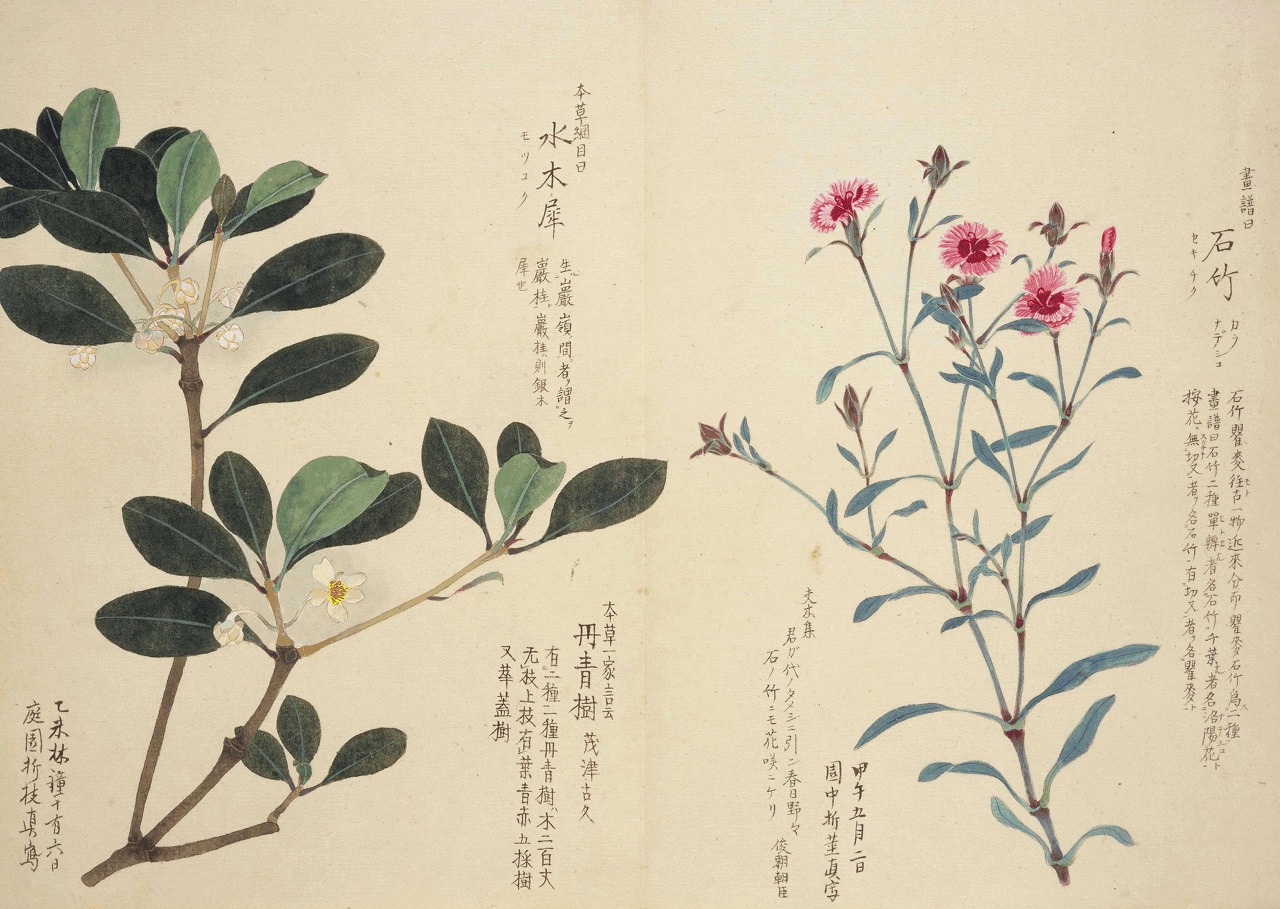 畫譜曰
石竹
セキチク
カラ
ナデシコ
石竹瞿麥往古一物近來分而瞿麥石竹爲二種
畫譜曰石竹二種單瓣者名石竹千葉者名洛陽花
按花無切又者名石竹有切又者名瞿麥
夫木集
君ガ代ノタメシニ引ン春日野々
石ノ竹ニモ花咲ニケリ
俊朝朝臣
甲午五月二日
園中折莖眞寫
本草綱目曰
水木犀
モツコク
生巖嶺間者謂之
巖桂巖桂則銀木
犀也
本草一家言云
丹青樹
茂津古久
有二種一種丹青樹木二百丈
无枝上枝有葉青赤五採樹
又華蓋樹
乙未林鐘十有六日
庭園折枝眞寫